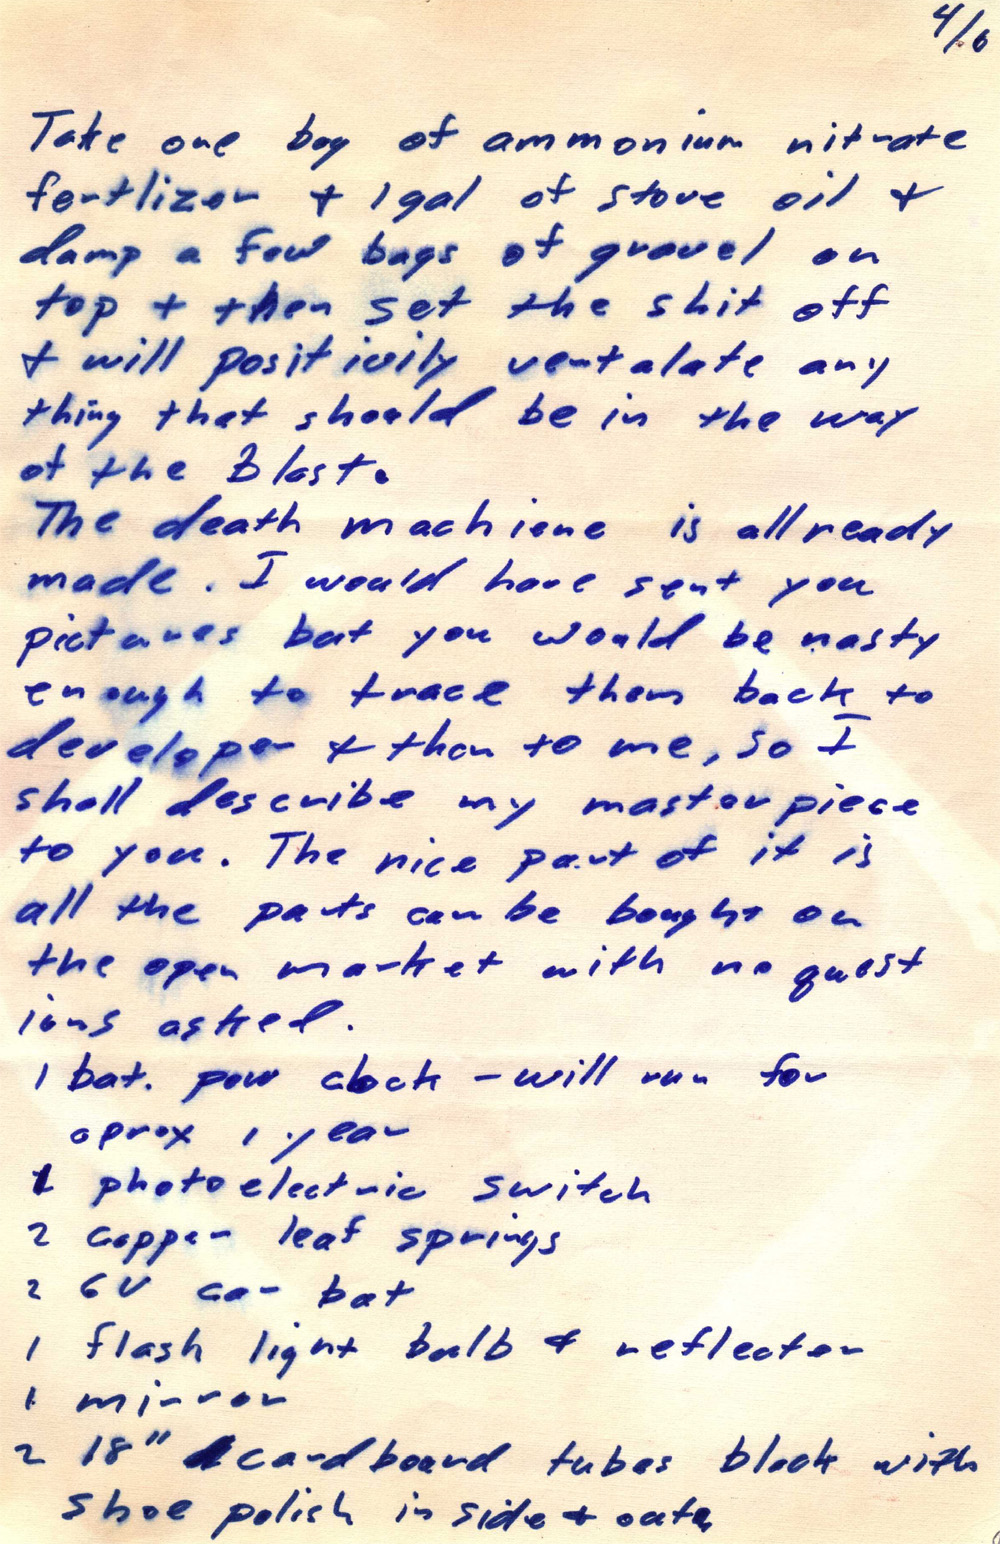 4/6
Take one bag of ammonium nitrate
fertlizer + 1 gal of stove oil &
dump a few bags of gravel on
top + then set the shit off
& will positivily ventalate any
thing that should be in the way
of the Blast.
The death machiene is allready
made. I would have sent you
pictures but you would be nasty
enough to trace them back to
developer & then to me, so I
shall describe my masterpiece
to you. The nice part of it is
all the parts can be bought on
the open market with no quest
ions asked.
1 bat. pow clock – will run for
aprox 1 year
1 photoelectric switch
2 copper leaf springs
2 6V car bat
1 flash light bulb & reflector
1 mirror
2 18" cardboard tubes black with
shoe polish in side & oute